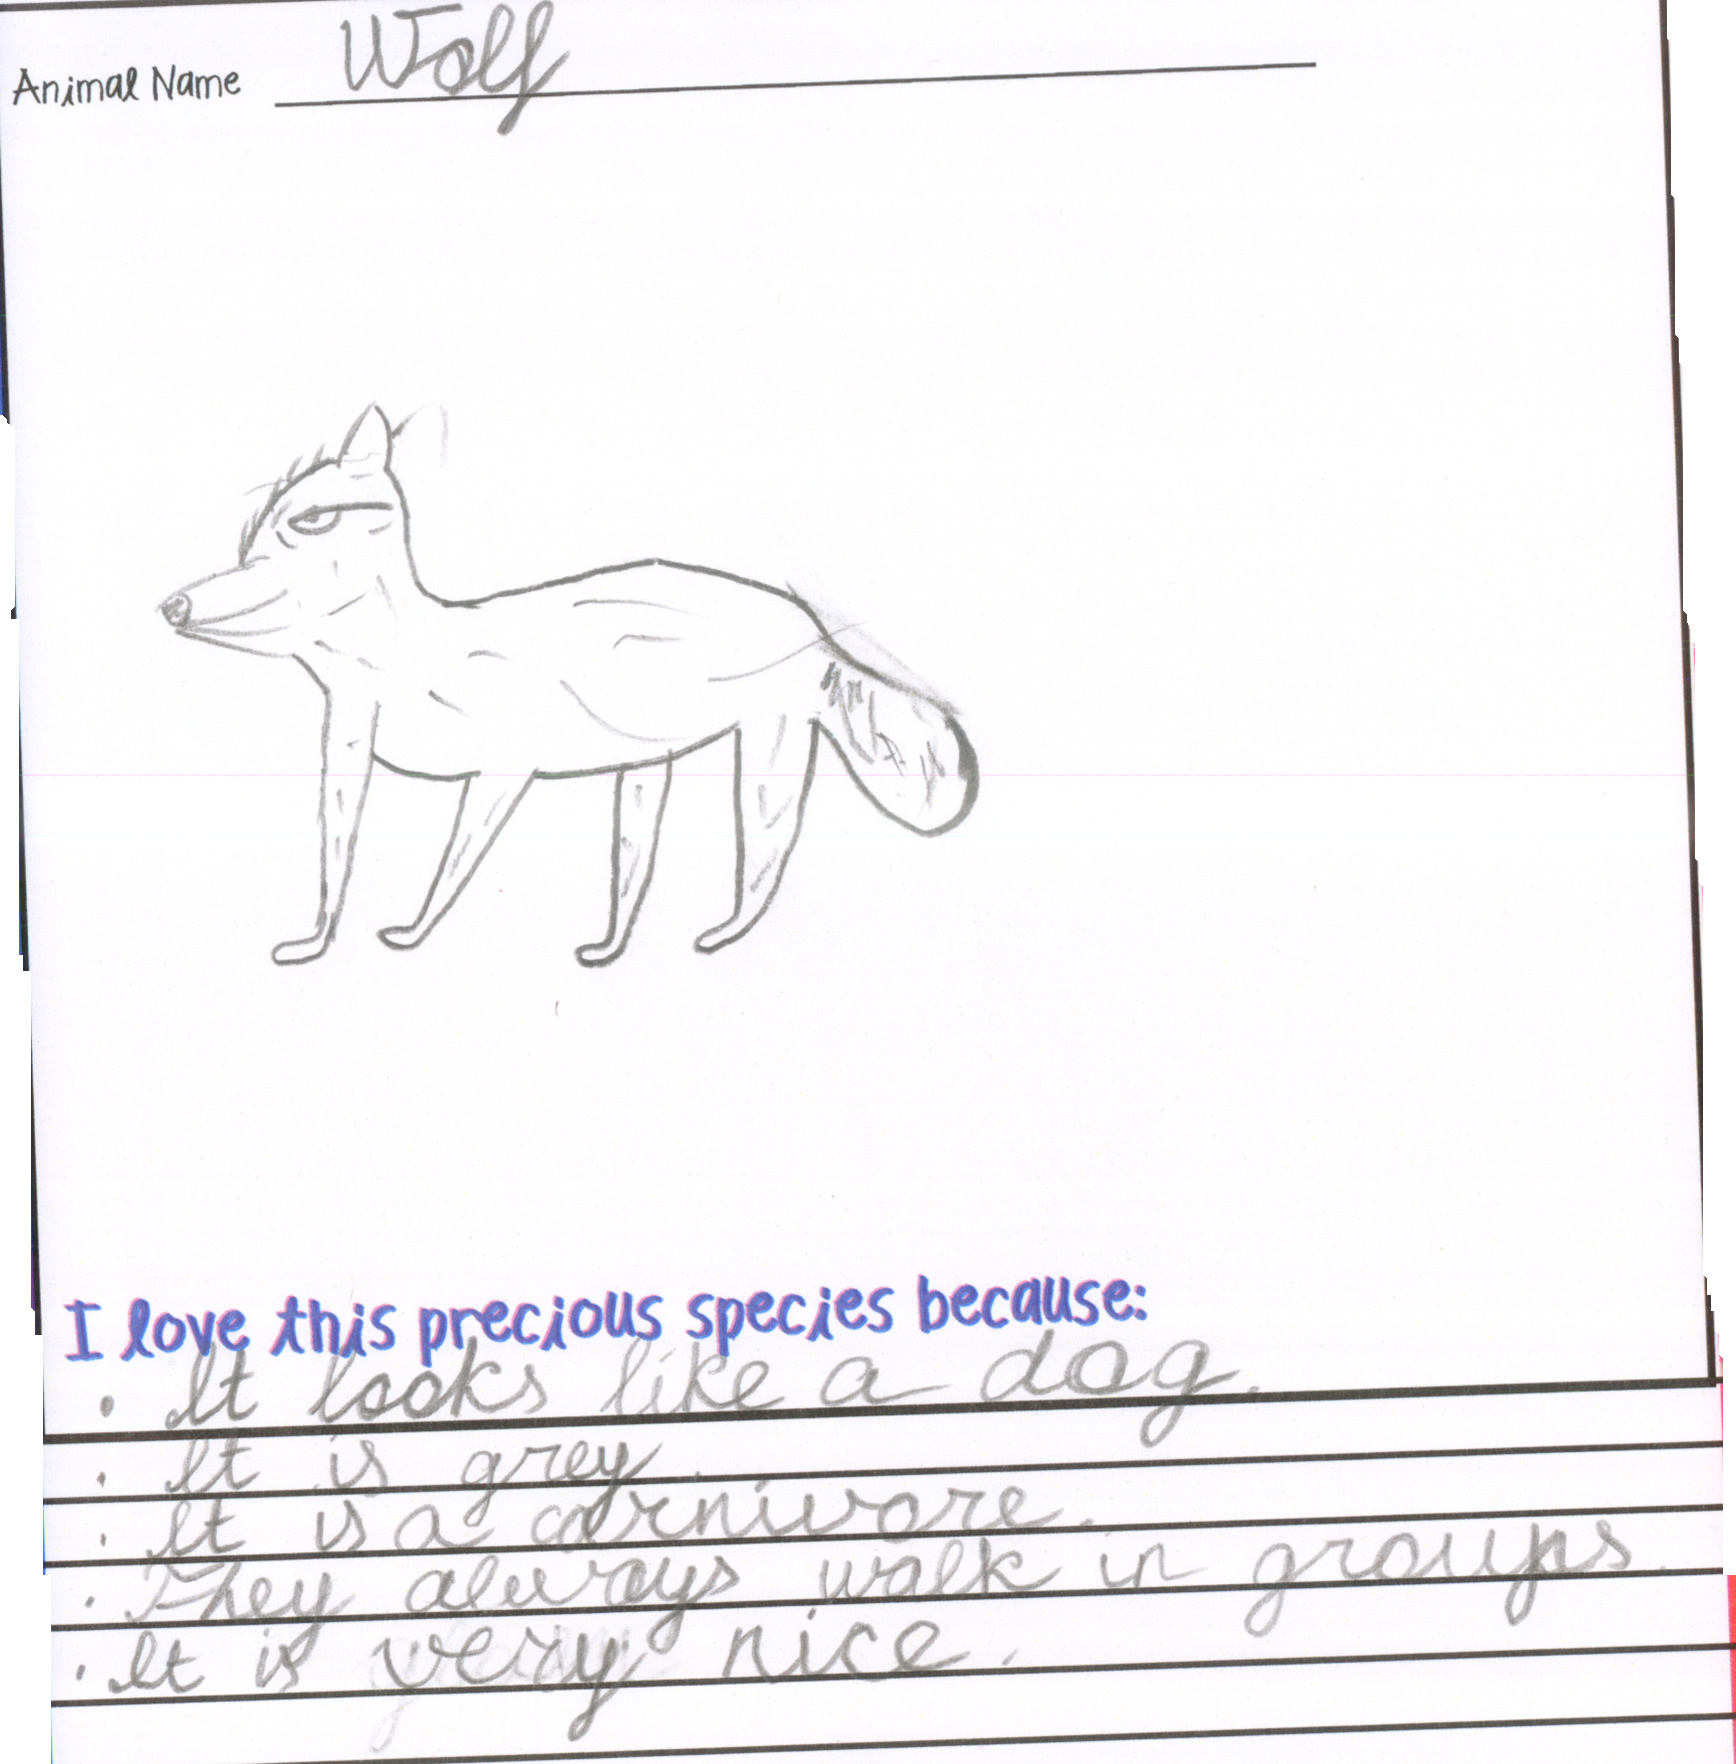 Animal Name Wolf
I love this precious species because:
· It looks like a dog.
· It is grey.
· It is a carnivore.
· They always walk in groups.
· It is very nice.